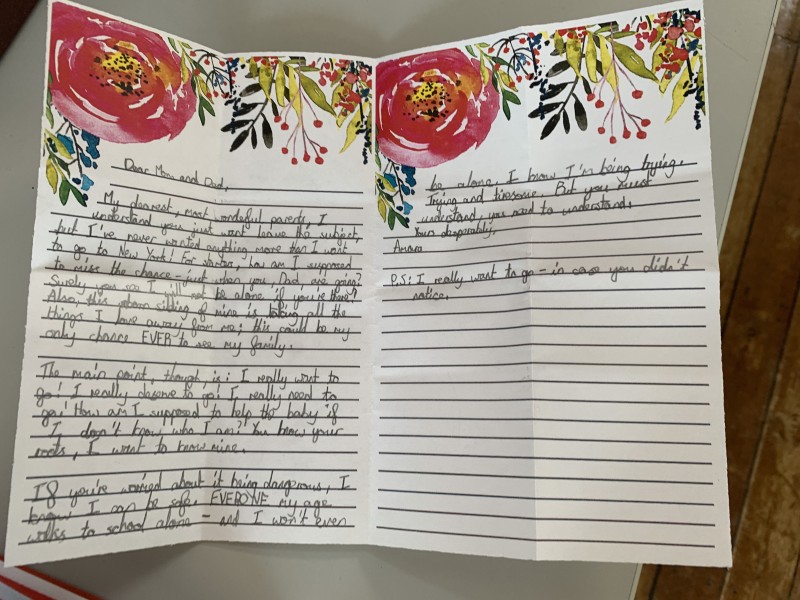 Dear Mom and Dad,
My dearest, most wonderful parents, I
understand you just want leave this subject,
but I've never wanted anything more than I want
to go to New York! For starter, how am I supposed
to miss the chance - just when you, Dad, are going?
Surely you see I will not be alone if you're there?
Also, this unborn sibling of mine is taking all the
things I love away from me; this could be my
only chance EVER to see my family.
The main point, though, is: I really want to
go! I really deserve to go! I really need to
go! How am I supposed to help the baby if
I don't know who I am? You know your
roots, I want to know mine.
If you're worried about it being dangerous, I
know I can be safe. EVERYONE my age
walks to school alone - and I won't even
be alone. I know I'm being trying.
Trying and tiresome. But you must
understand, you need to understand!
Yours desperately,
Amara
P.S: I really want to go - in case you didn't
notice.